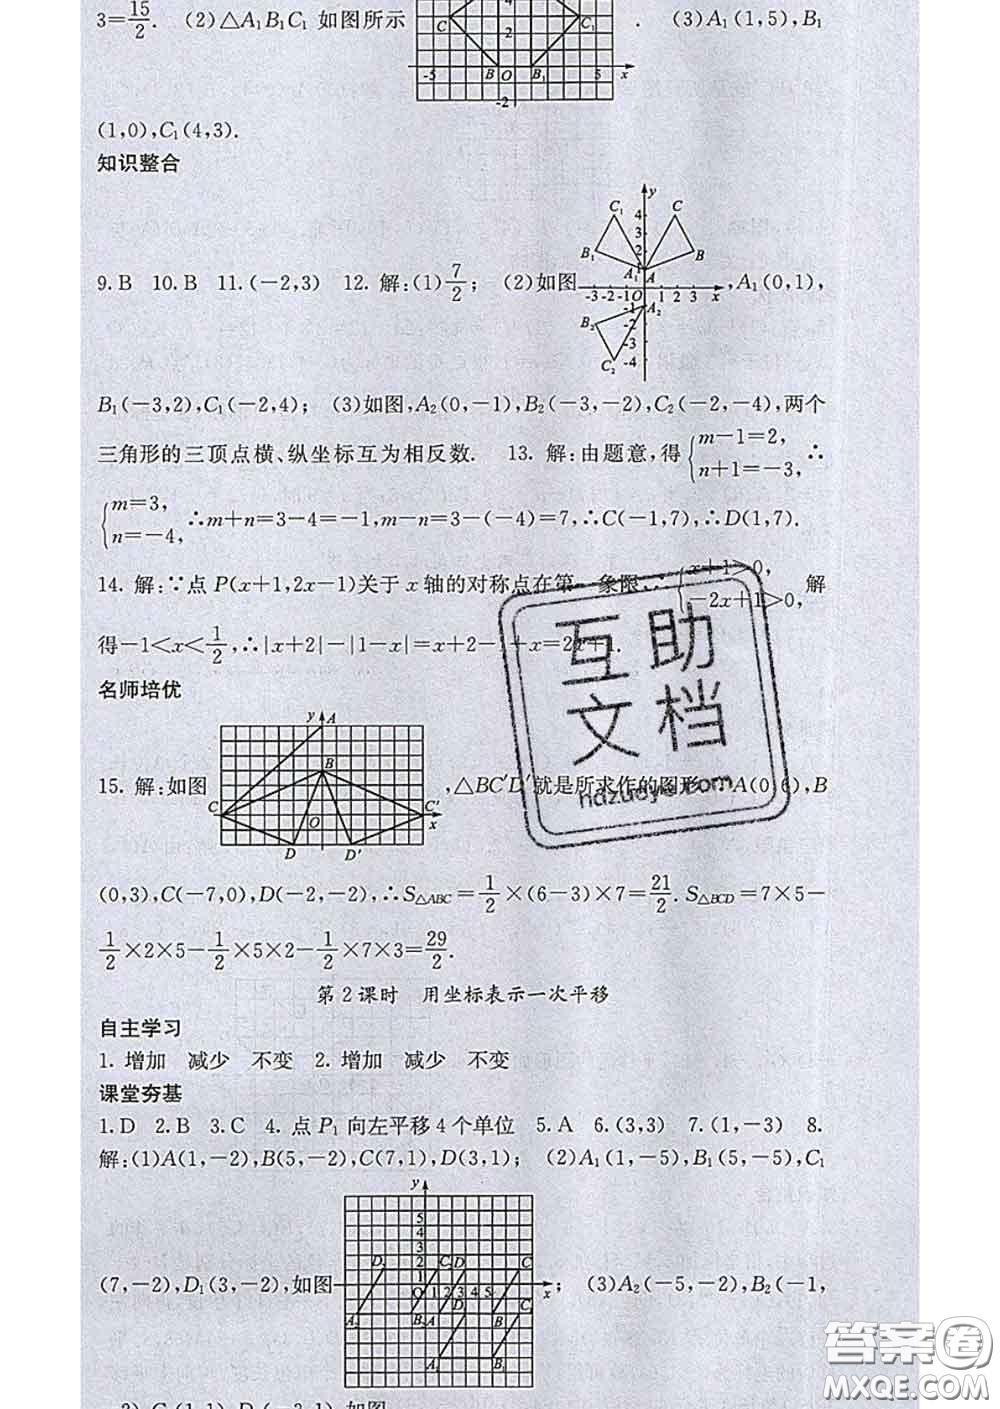 3=15/2. (2)△A₁B₁C₁ 如图所示 . (3)A₁(1,5),B₁
(1,0),C₁(4,3).
知识整合
9.B 10.B 11.(-2,3) 12. 解:(1)7/2; (2)如图 ,A₁(0,1),
B₁(-3,2),C₁(-2,4); (3)如图,A₂(0,-1),B₂(-3,-2),C₂(-2,-4),两个
三角形的三顶点横、纵坐标互为相反数. 13. 解:由题意,得{m-1=2, n+1=-3, ∴
{m=3, n=-4, ∴m+n=3-4=-1,m-n=3-(-4)=7,∴C(-1,7),∴D(1,7).
14. 解:∵点 P(x+1,2x-1)关于 x 轴的对称点在第 象限,∴{x+1>0, -2x+1>0, 解
得-1<x<1/2,∴|x+2|-|1-x|=x+2- +x=2x+1.
名师培优
15. 解:如图 ,△BC′D′就是所求作的图形. A(0,6),B
(0,3),C(-7,0),D(-2,-2),∴S△ABC=1/2×(6-3)×7=21/2.S△BCD=7×5-
1/2×2×5-1/2×5×2-1/2×7×3=29/2.
第2课时 用坐标表示一次平移
自主学习
1. 增加 减少 不变 2. 增加 减少 不变
课堂夯基
1.D 2.B 3.C 4. 点 P₁ 向左平移 4 个单位 5.A 6.(3,3) 7.(1,-3) 8.
解:(1)A(1,-2),B(5,-2),C(7,1),D(3,1); (2)A₁(1,-5),B₁(5,-5),C₁
(7,-2),D₁(3,-2),如图 ; (3)A₂(-5,-2),B₂(-1,
互助
文档
hdzuoye.com
答案圈
MXQE.COM